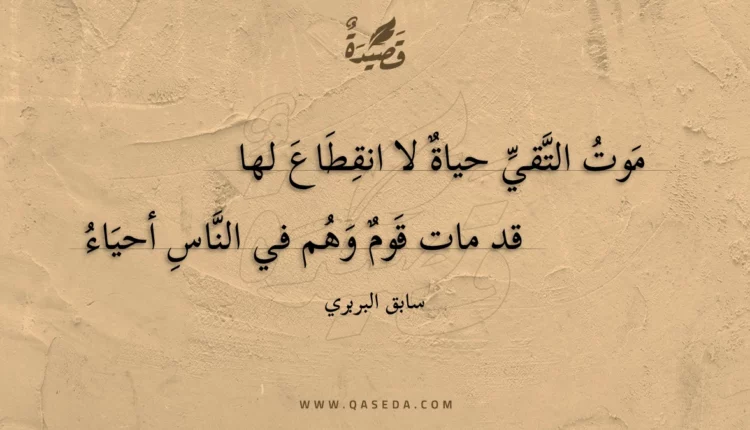 قَصِيْدَةٌ
مَوتُ التَّقيِّ حياةٌ لا انقِطَاعَ لها
قد مات قَومٌ وَهُم في النَّاسِ أحيَاءُ
سابق البربري
WWW.QASEDA.COM